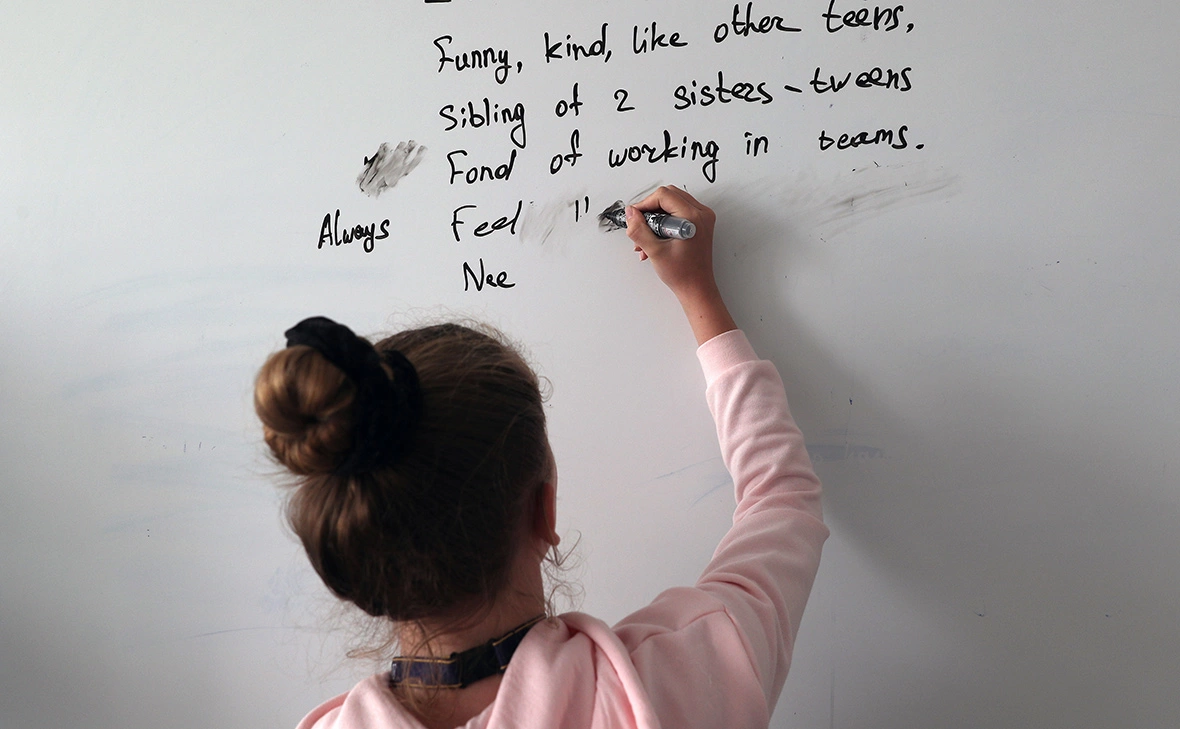 Funny, kind, like other teens,
Sibling of 2 sisters - tweens
Fond of working in teams.
Always Feel "
Nee